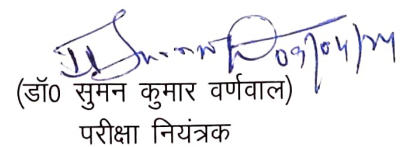 09/04/24
(डॉ0 सुमन कुमार वर्णवाल)
परीक्षा नियंत्रक